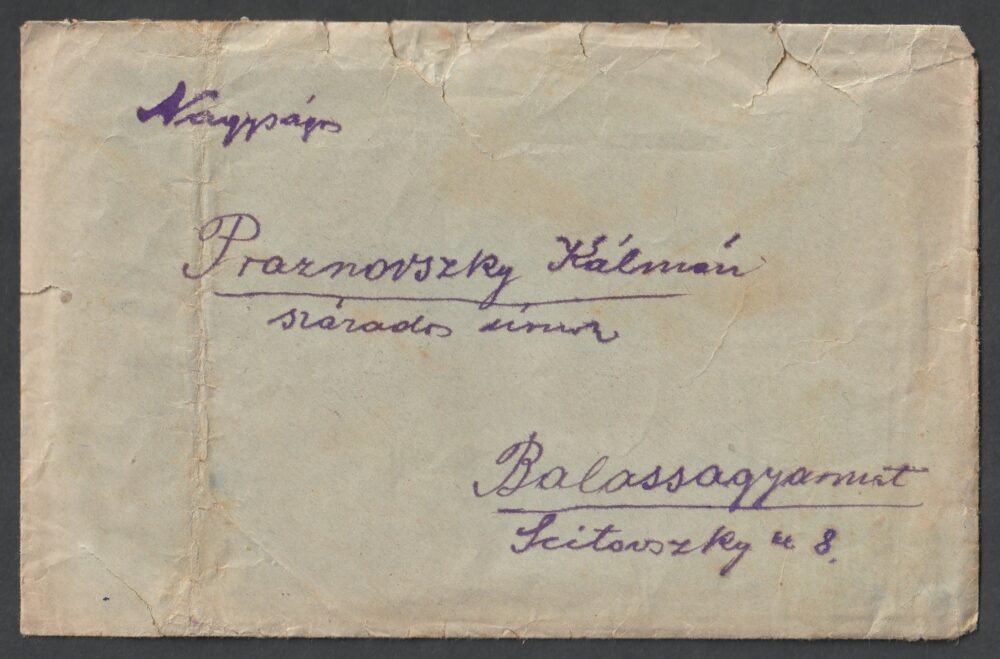 Nagyságos
Praznovszky Kálmán
százados úrnak
Balassagyarmat
Scitovszky u 8.